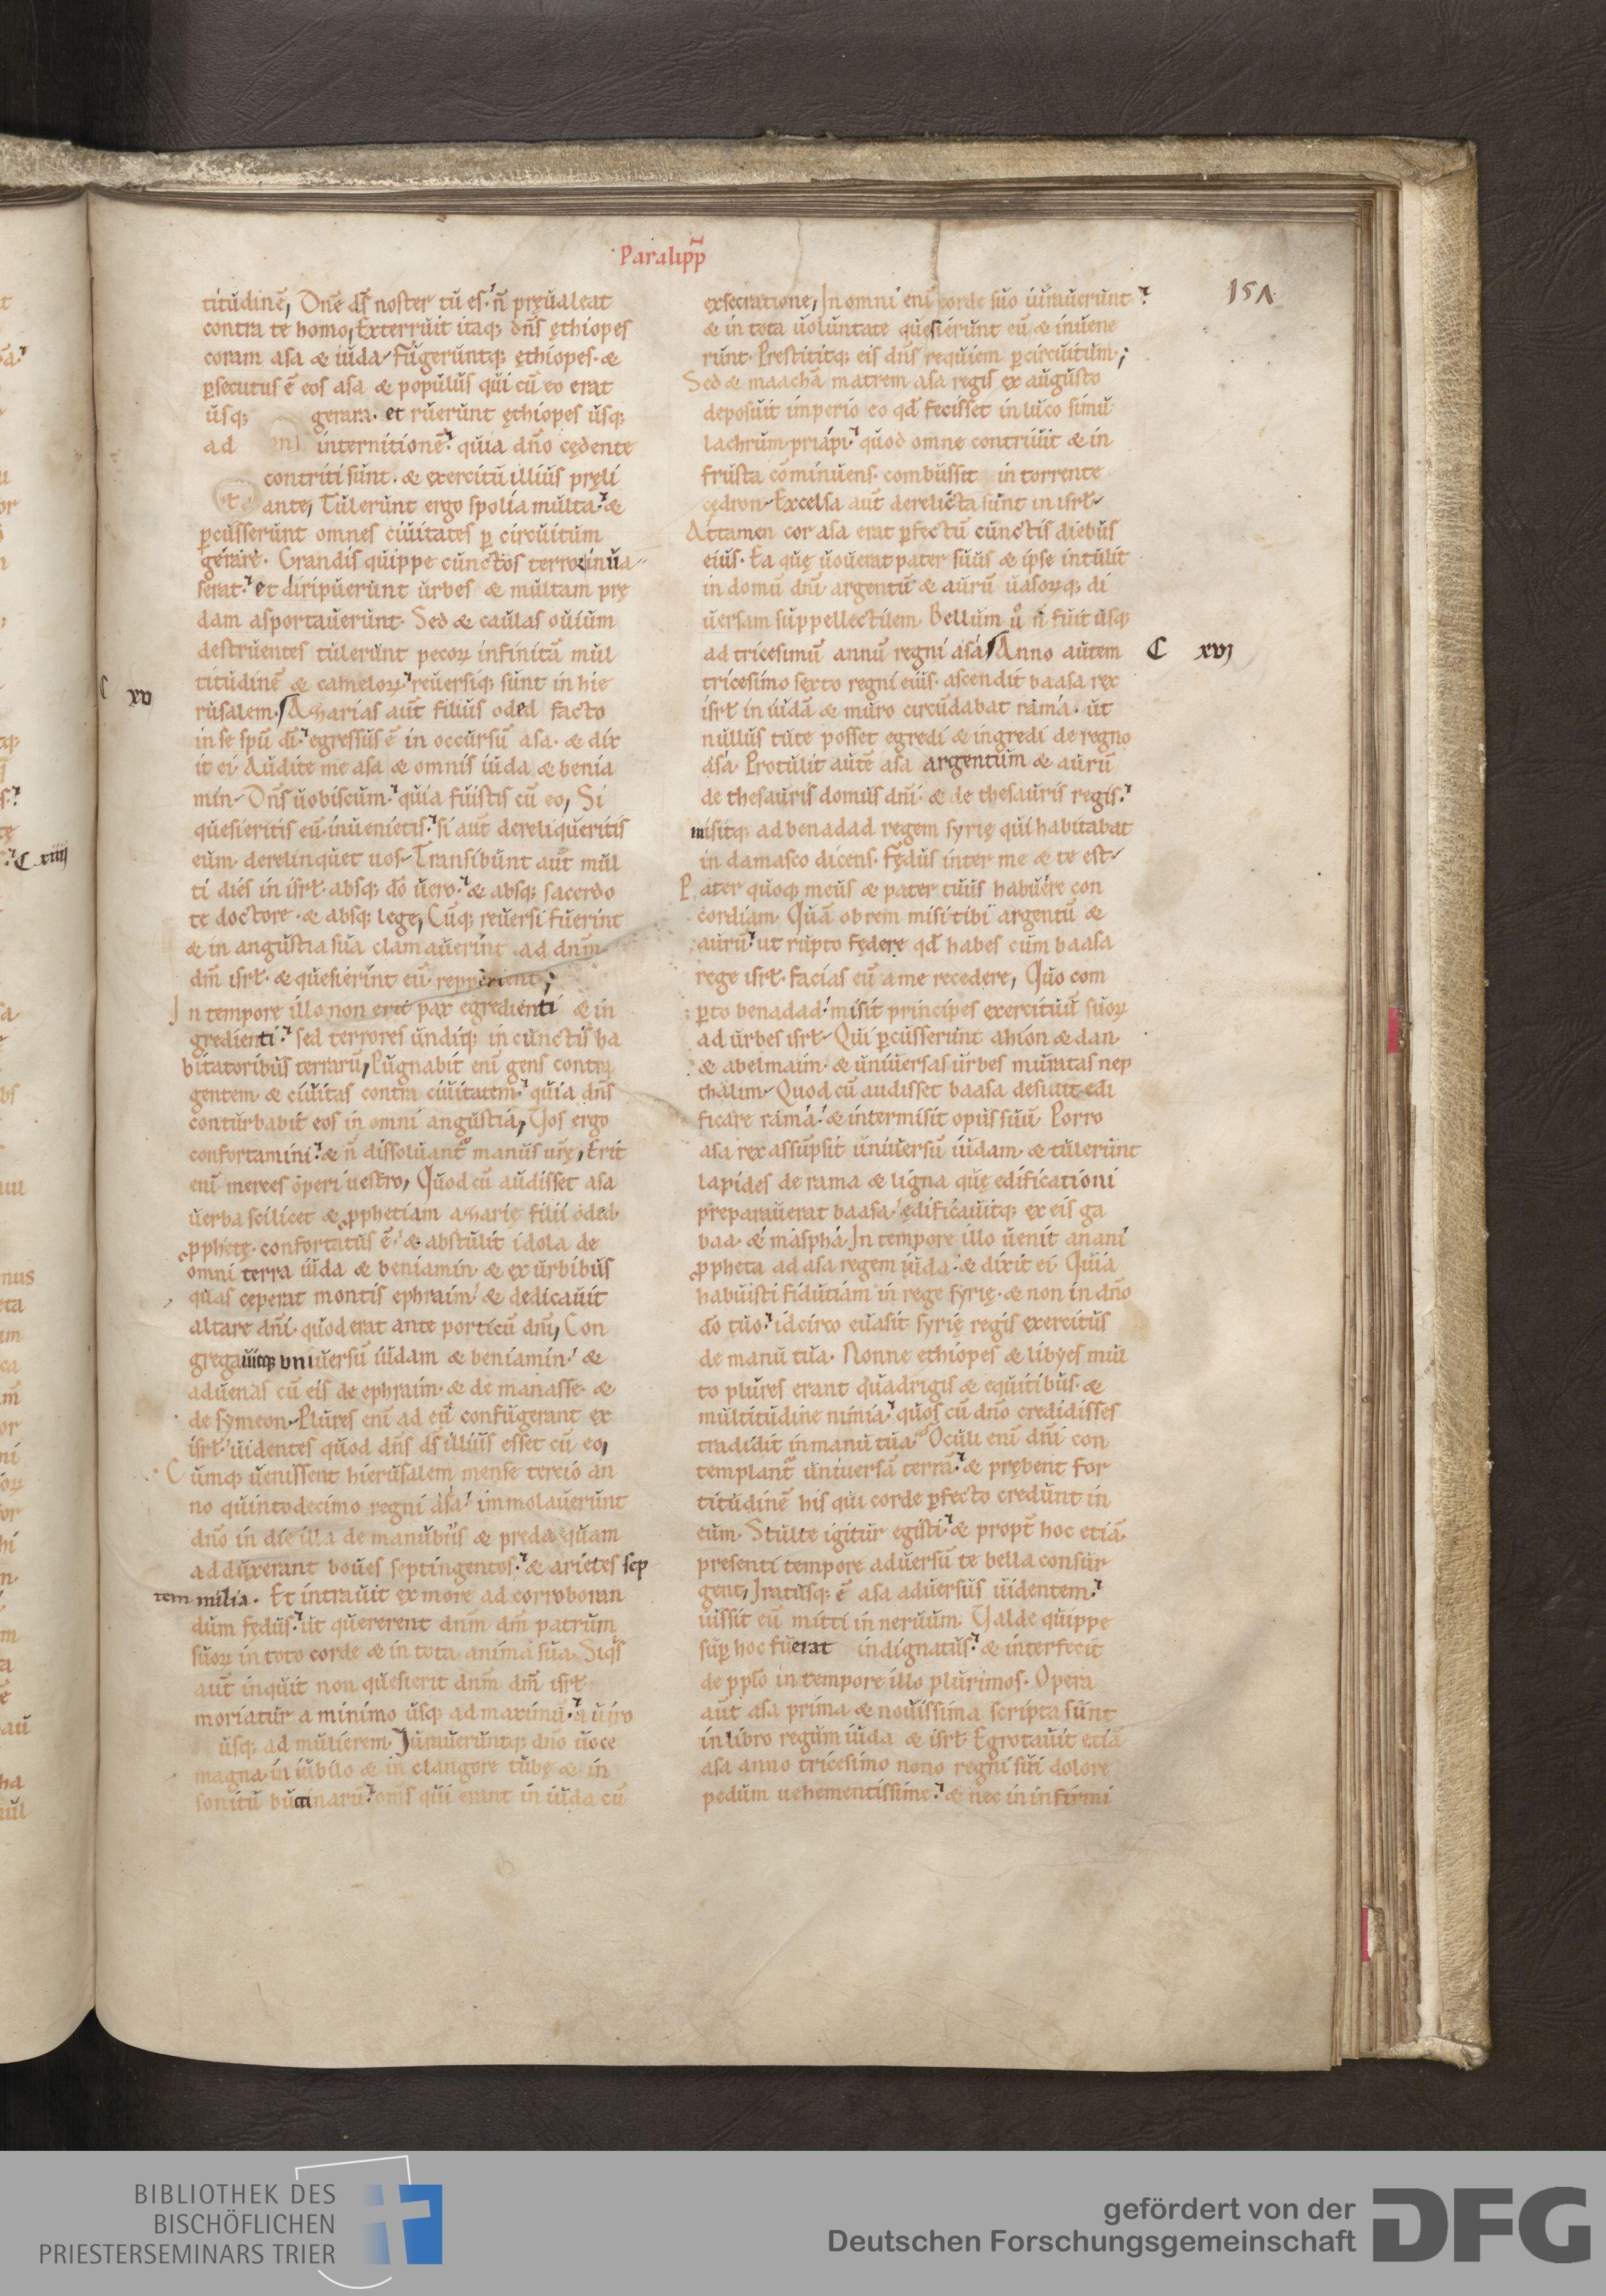 Paralipp̄
151
titudinē, Dnē ds̄ noster tu es. n̄ pręualeat
contra te homo, Exterruit itaq; dn̄s ęthiopes
coram asa & iuda. Fugeruntq; ęthiopes. &
ꝑsecutus ē eos asa & populus qui cū eo erat
usq; gerara. et ruerunt ęthiopes usq;
ad internitionē. quia dn̄o cędente
contriti sunt. & exercitu illius pręli
ante, Tulerunt ergo spolia multa. &
ꝑcusserunt omnes ciuitates ꝑ circuitum
gerare. Grandis quippe cunctos terror inua
serat. et diripuerunt urbes & multam prę
dam asportauerunt. Sed & caulas ouium
destruentes tulerunt pecorꝝ infinitā mul
titudinē & camelorꝝ. reuersiq; sunt in hie
C xv
rusalem. Aʒarias aut̄ filius oded facto
in se spū dī. egressus ē in occursū asa. & dix
it ei. Audite me asa & omnis iuda & benia
min. Dn̄s uobiscum. quia fuistis cū eo, Si
quesieritis eū. inuenietis. si aut̄ dereliqueritis
eum. derelinquet uos. Transibunt aut̄ mul
ti dies in isrł. absq; dō uero. & absq; sacerdo
te doctore. & absq; lege, Cūq; reuersi fuerint
& in angustia sua clamauerint ad dnm̄
dm̄ isrł. & quesierint eū. repperient;
In tempore illo non erit pax egredienti & in
gredienti. sed terrores undiq; in cunctis ha
bitatoribus terrarū, Pugnabit enī gens contra
gentem & ciuitas contra ciuitatem. quia dn̄s
conturbabit eos in omni angustia, Uos ergo
confortamini. & n̄ dissoluant᷑ manus ur̄ę, Erit
enī merces operi uestro, Quod cū audisset asa
uerba scilicet & ꝓphetiam aʒarię filii oded
ꝓphetę. confortatus ē. & abstulit idola de
omni terra iuda & beniamin. & ex urbibus
quas ceperat montis ephraim. & dedicauit
altare dn̄i. quod erat ante porticū dn̄i, Con
gregauitq; vniuersū iudam & beniamin. &
aduenas cū eis de ephraim. & de manasse. &
de symeon. Plures enī ad eū confugerant ex
isrł. uidentes quod dn̄s ds̄ illius esset cū eo,
Cumq; uenissent hierusalem mense tercio an
no quintodecimo regni asa. immolauerunt
dn̄o in die illa de manubiis & preda quam
adduxerant boues septingentos. & arietes sep
tem milia. Et intrauit ex more ad corroboran
dum fędus. ut quererent dnm̄ dm̄ patrum
suorꝝ in toto corde & in tota anima sua. Siqs
aut̄ inquit non quesierit dnm̄ dm̄ isrł.
moriatur a minimo usq; ad maximū. a uiro
usq; ad mulierem. Juraueruntq; dn̄o uoce
magna. in iubilo & in clangore tubę & in
sonitu bucinarū. om̄s qui erant in iuda cū
exsecratione, In omni enī corde suo iurauerunt.
& in tota uoluntate quesierunt eū & inuene
runt. Prestititq; eis dn̄s requiem ꝑ circuitum;
Sed & maachā matrem asa regis ex augusto
deposuit imperio eo qđ fecisset in luco simu
lachrum priapi. quod omne contriuit & in
frusta cōminuens. combussit in torrente
cedron. Excelsa aut̄ derelicta sunt in isrł.
Attamen cor asa erat ꝑfectū cunctis diebus
eius. Ea quę uouerat pater suus & ipse intulit
in domū dn̄i argentū & aurū uasorꝝq; di
uersam suppellectilem. Bellum ů n̄ fuit usq;
ad tricesimū annū regni asa. Anno autem
C xvj
tricesimo sexto regni eius. ascendit baasa rex
isrł in iudā & muro circūdabat ramā. ut
nullus tute posset egredi & ingredi de regno
asa. Protulit autē asa argentum & aurū
de thesauris domus dn̄i. & de thesauris regis.
misitq; ad benadad regem syrię qui habitabat
in damasco dicens. Fędus inter me & te est.
Pater quoq; meus & pater tuus habuere con
cordiam. Quā obrem misi tibi argentū &
aurū. ut rupto fędere qđ habes cum baasa
rege isrł. facias eū a me recedere, Quo com
ꝑto benadad. misit principes exercituū suorꝝ
ad urbes isrł. Qui ꝑcusserunt ahion & dan.
& abelmaim. & uniuersas urbes muratas nep
thalim. Quod cū audisset baasa desiuit edi
ficare ramā. & intermisit opus suū. Porro
asa rex assūpsit uniuersū iudam. & tulerunt
lapides de rama & ligna quę edificationi
preparauerat baasa. ędificauitq; ex eis ga
baa. & maspha. In tempore illo uenit anani
ꝓpheta ad asa regem iuda. & dixit ei. Quia
habuisti fidutiam in rege syrię. & non in dn̄o
dō tuo. idcirco euasit syrię regis exercitus
de manu tua. Nonne ethiopes & libyes mul
to plures erant quadrigis & equitibus. &
multitudine nimia. quos cū dn̄o credidisses
tradidit in manu tua. Oculi enī dn̄i con
templant᷑ uniuersā terrā. & prębent for
titudinē his qui corde ꝑfecto credunt in
eum. Stulte igitur egisti. & propt̄ hoc etiā
presenti tempore aduersū te bella consur
gent, Iratusq; ē asa aduersus uidentem.
iussit eū mitti in neruum. Ualde quippe
suꝑ hoc fuerat indignatus. & interfecit
de ppło in tempore illo plurimos. Opera
aut̄ asa prima & nouissima scripta sunt
in libro regum iuda & isrł. Egrotauit etiā
asa anno tricesimo nono regni sui dolore
pedum uehementissime. & nec in infirmi
BIBLIOTHEK DES
BISCHÖFLICHEN
PRIESTERSEMINARS TRIER
gefördert von der
Deutschen Forschungsgemeinschaft
DFG